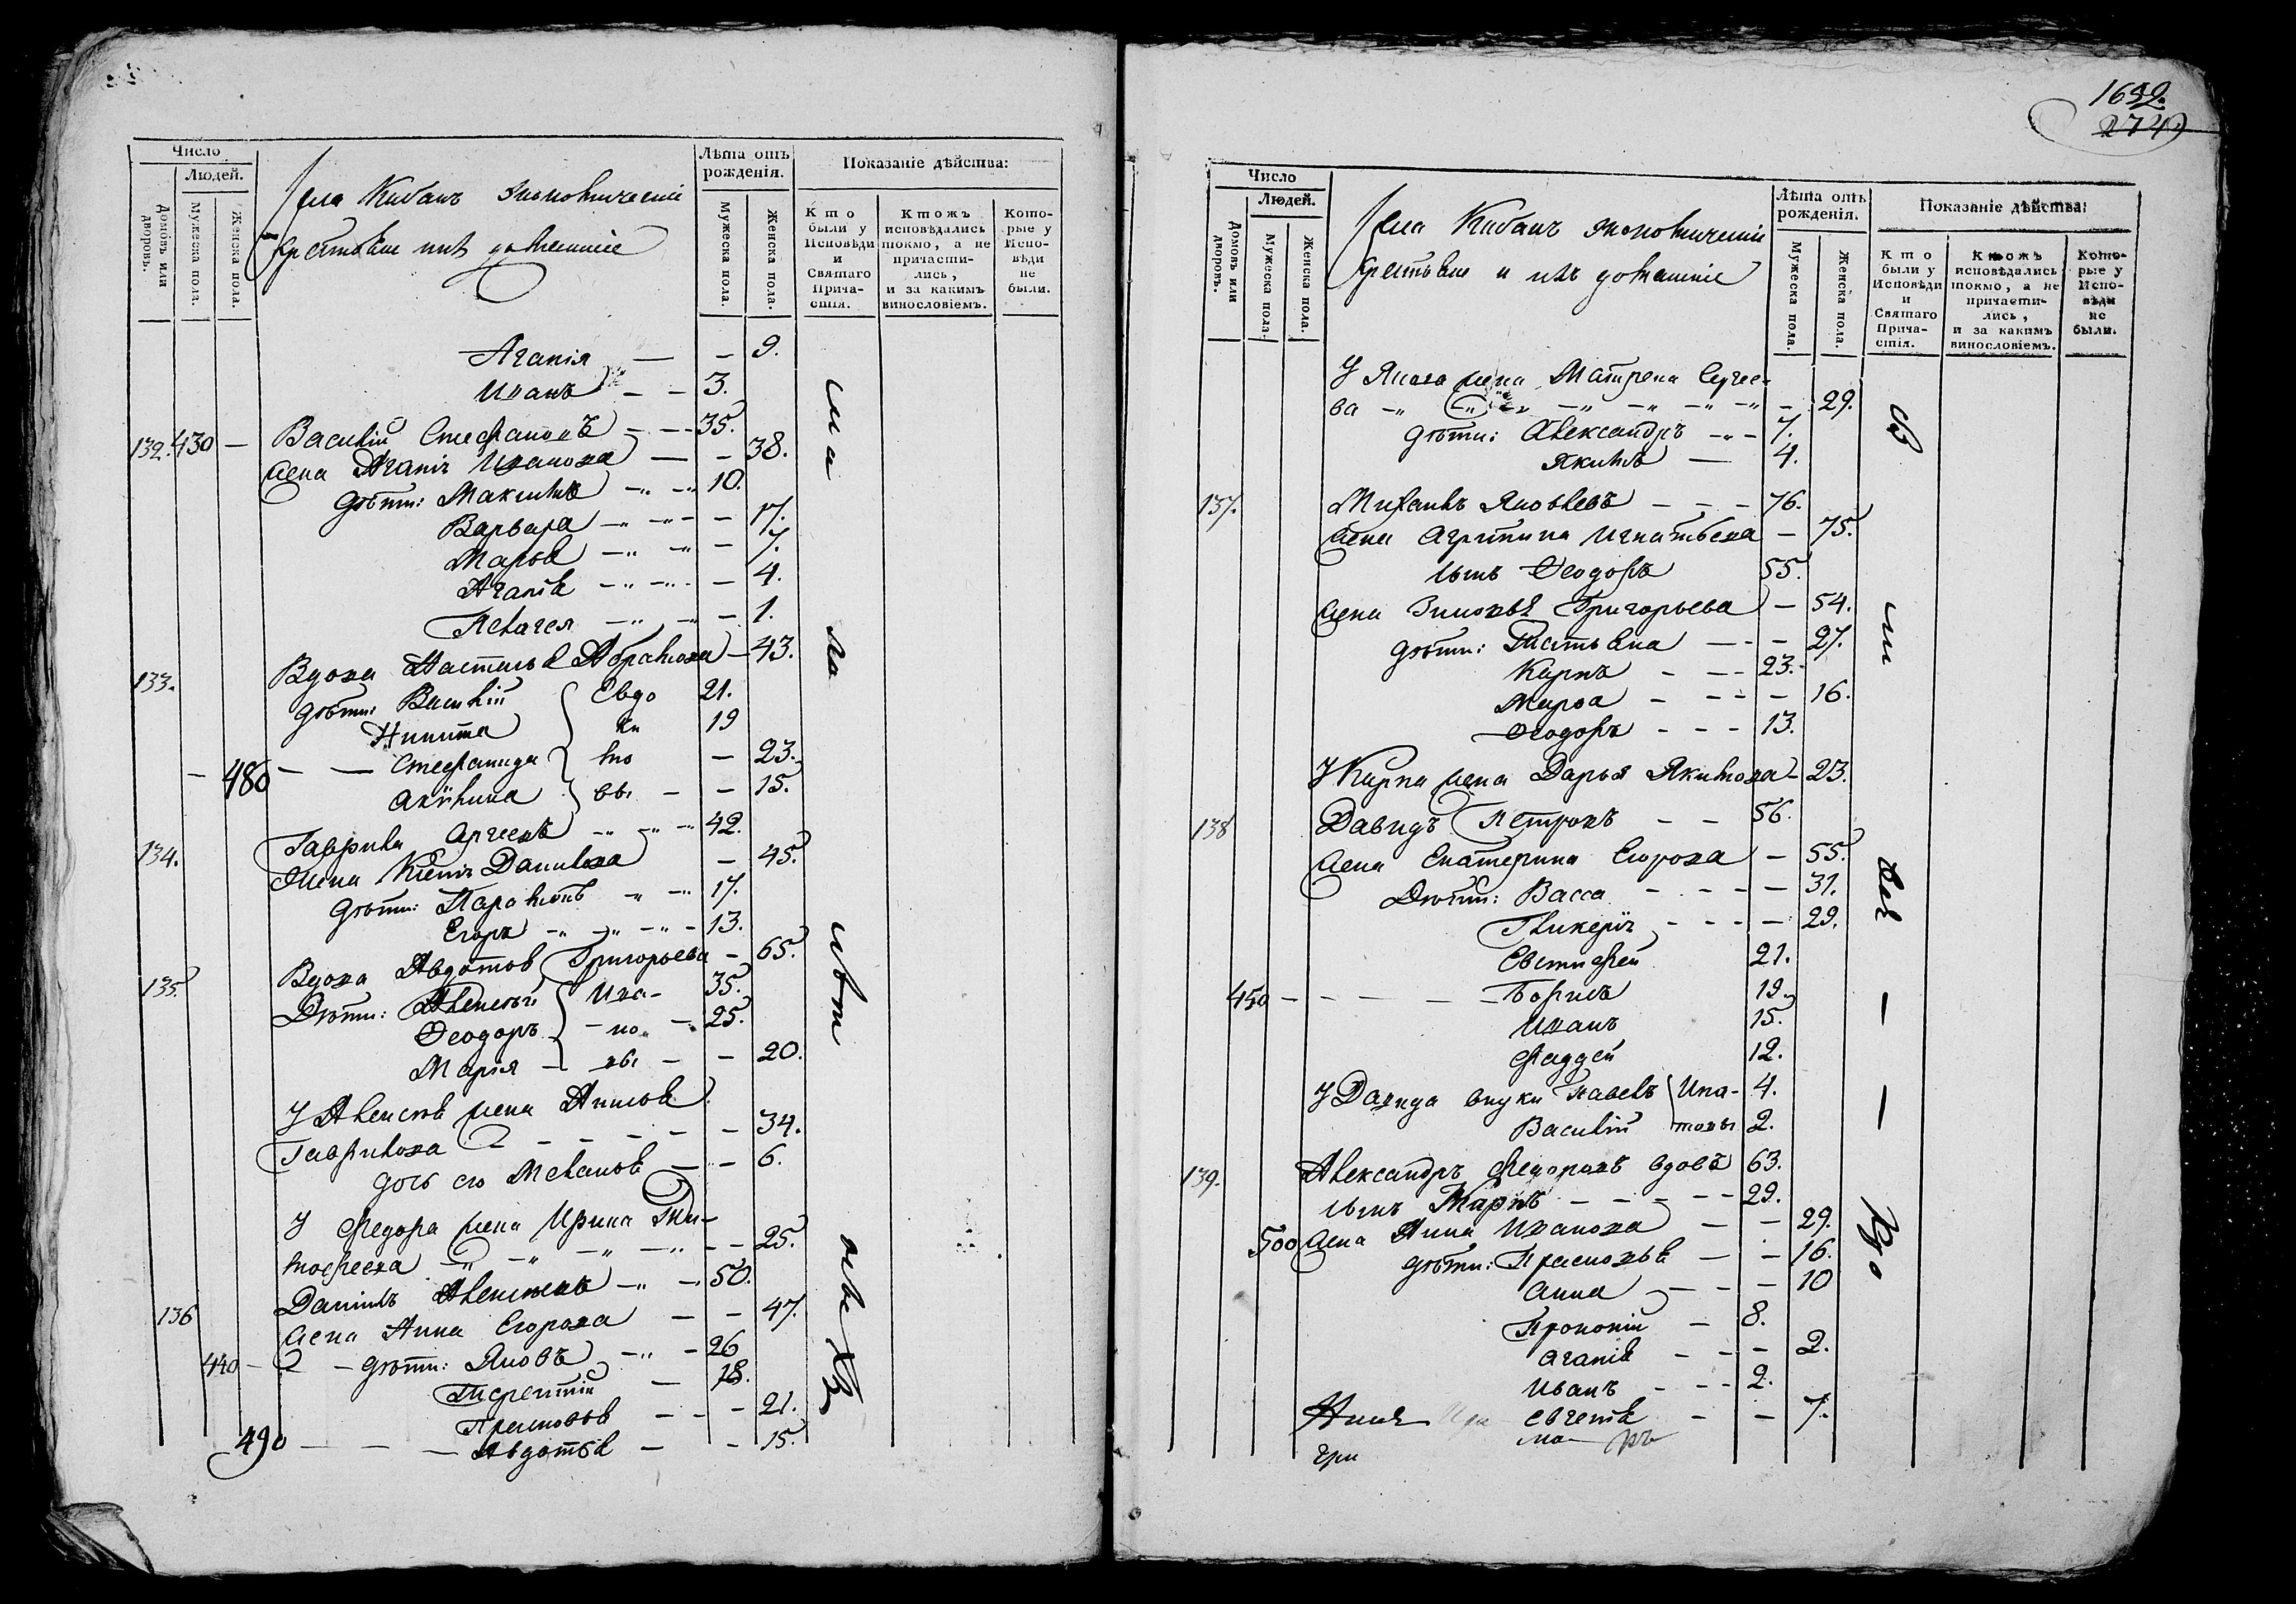 Число
Людей.
Домовъ или дворовъ.
Мужеска пола.
Женска пола.
Села Кибанъ экономическіе
крестьяне ихъ домашніе
Лѣта отъ рожденія.
Мужеска пола.
Женска пола.
Показаніе дѣйства:
Кто были у Исповѣди и Святаго Прича-стія.
Ктожъ исповѣдались токмо, а не причасти-лись, и за какимъ винословіемъ.
Кото-рые у Испо-вѣди не были.
Агапія — — 9.
Иванъ — — 3.
132. 430 — Василій Стефановъ — — 35.
жена Агапія Иванова — — 38.
дѣти: Максимъ 10.
Варвара — 17.
Марья — 7.
Агапія — 4.
Пелагея — 1.
133. Вдова Настасья Абрамова — 43.
дѣти: Василій Евдо 21.
Никита ки 19
— 480 — — Стефанида мо — 23.
Акилина вы — — 15.
134. Гаврила Сргеевъ 42.
Жена Ксенія Данилова — 45.
дѣти: Парамонъ 17.
Егоръ 13.
135. Вдова Авдотья Григорьева — 65.
Дѣти: Алексѣй Ива- 35.
Феодоръ — но — 25.
Марія — вы — — 20.
У Алексѣя жена Анисья
Гаврилова — — — — — 34.
дочь его Меланья — — 6.
У Федора жена Ирина Ти-
мофеева — 25.
136 Даниилъ Алексеевъ 50.
жена Анна Егорова — — 47.
440 — — дѣти: Яковъ 26
Терентій — 18.
Прасковья — — — 21.
490 — — — Авдотья — — 15.
1692.
274
Число
Людей.
Домовъ или дворовъ.
Мужеска пола.
Женска пола.
Села Кибанъ экономическіе
крестьяне и ихъ домашніе
Лѣта отъ рожденія.
Мужеска пола.
Женска пола.
Показаніе дѣйства:
Кто были у Исповѣди и Святаго Прича-стія.
Ктожъ исповѣдались токмо, а не причасти-лись, и за какимъ винословіемъ.
Кото-рые у Испо-вѣди не были.
У Якова жена Матрена Сергее-
ва — 29.
дѣти: Александръ 7.
Якимъ — 4.
137. Михаилъ Яковлевъ — — — 76.
жена Агрипина Игнатьева — 75.
сынъ Феодоръ 55.
жена Зиновья Григорьева — 54.
дѣти: Татьяна — — 27.
Карпъ — — — 23.
Марфа — — — — 16.
Феодоръ — — — 13.
У Карпа жена Дарья Якимова — 23.
138 Давидъ Петровъ — — 56.
жена Екатерина Егорова — 55.
Дѣти: Васса — — — — 31.
Гликерія — — — — 29.
Евстифей 21.
450 — — — — — Борисъ 19.
Иванъ 15.
Фаддей 12.
У Давида внуки Павелъ Ипа- 4.
Василій товы 2.
139. Александръ Федоровъ вдовъ 63.
сынъ Маркъ — — — — 29.
500 жена Анна Иванова — — 29.
дѣти: Прасковья — — 16.
Анна — — 10
Прокопій — 8.
Агапія — — — 2.
Иванъ — — — 2.
Евгенія — — 7.